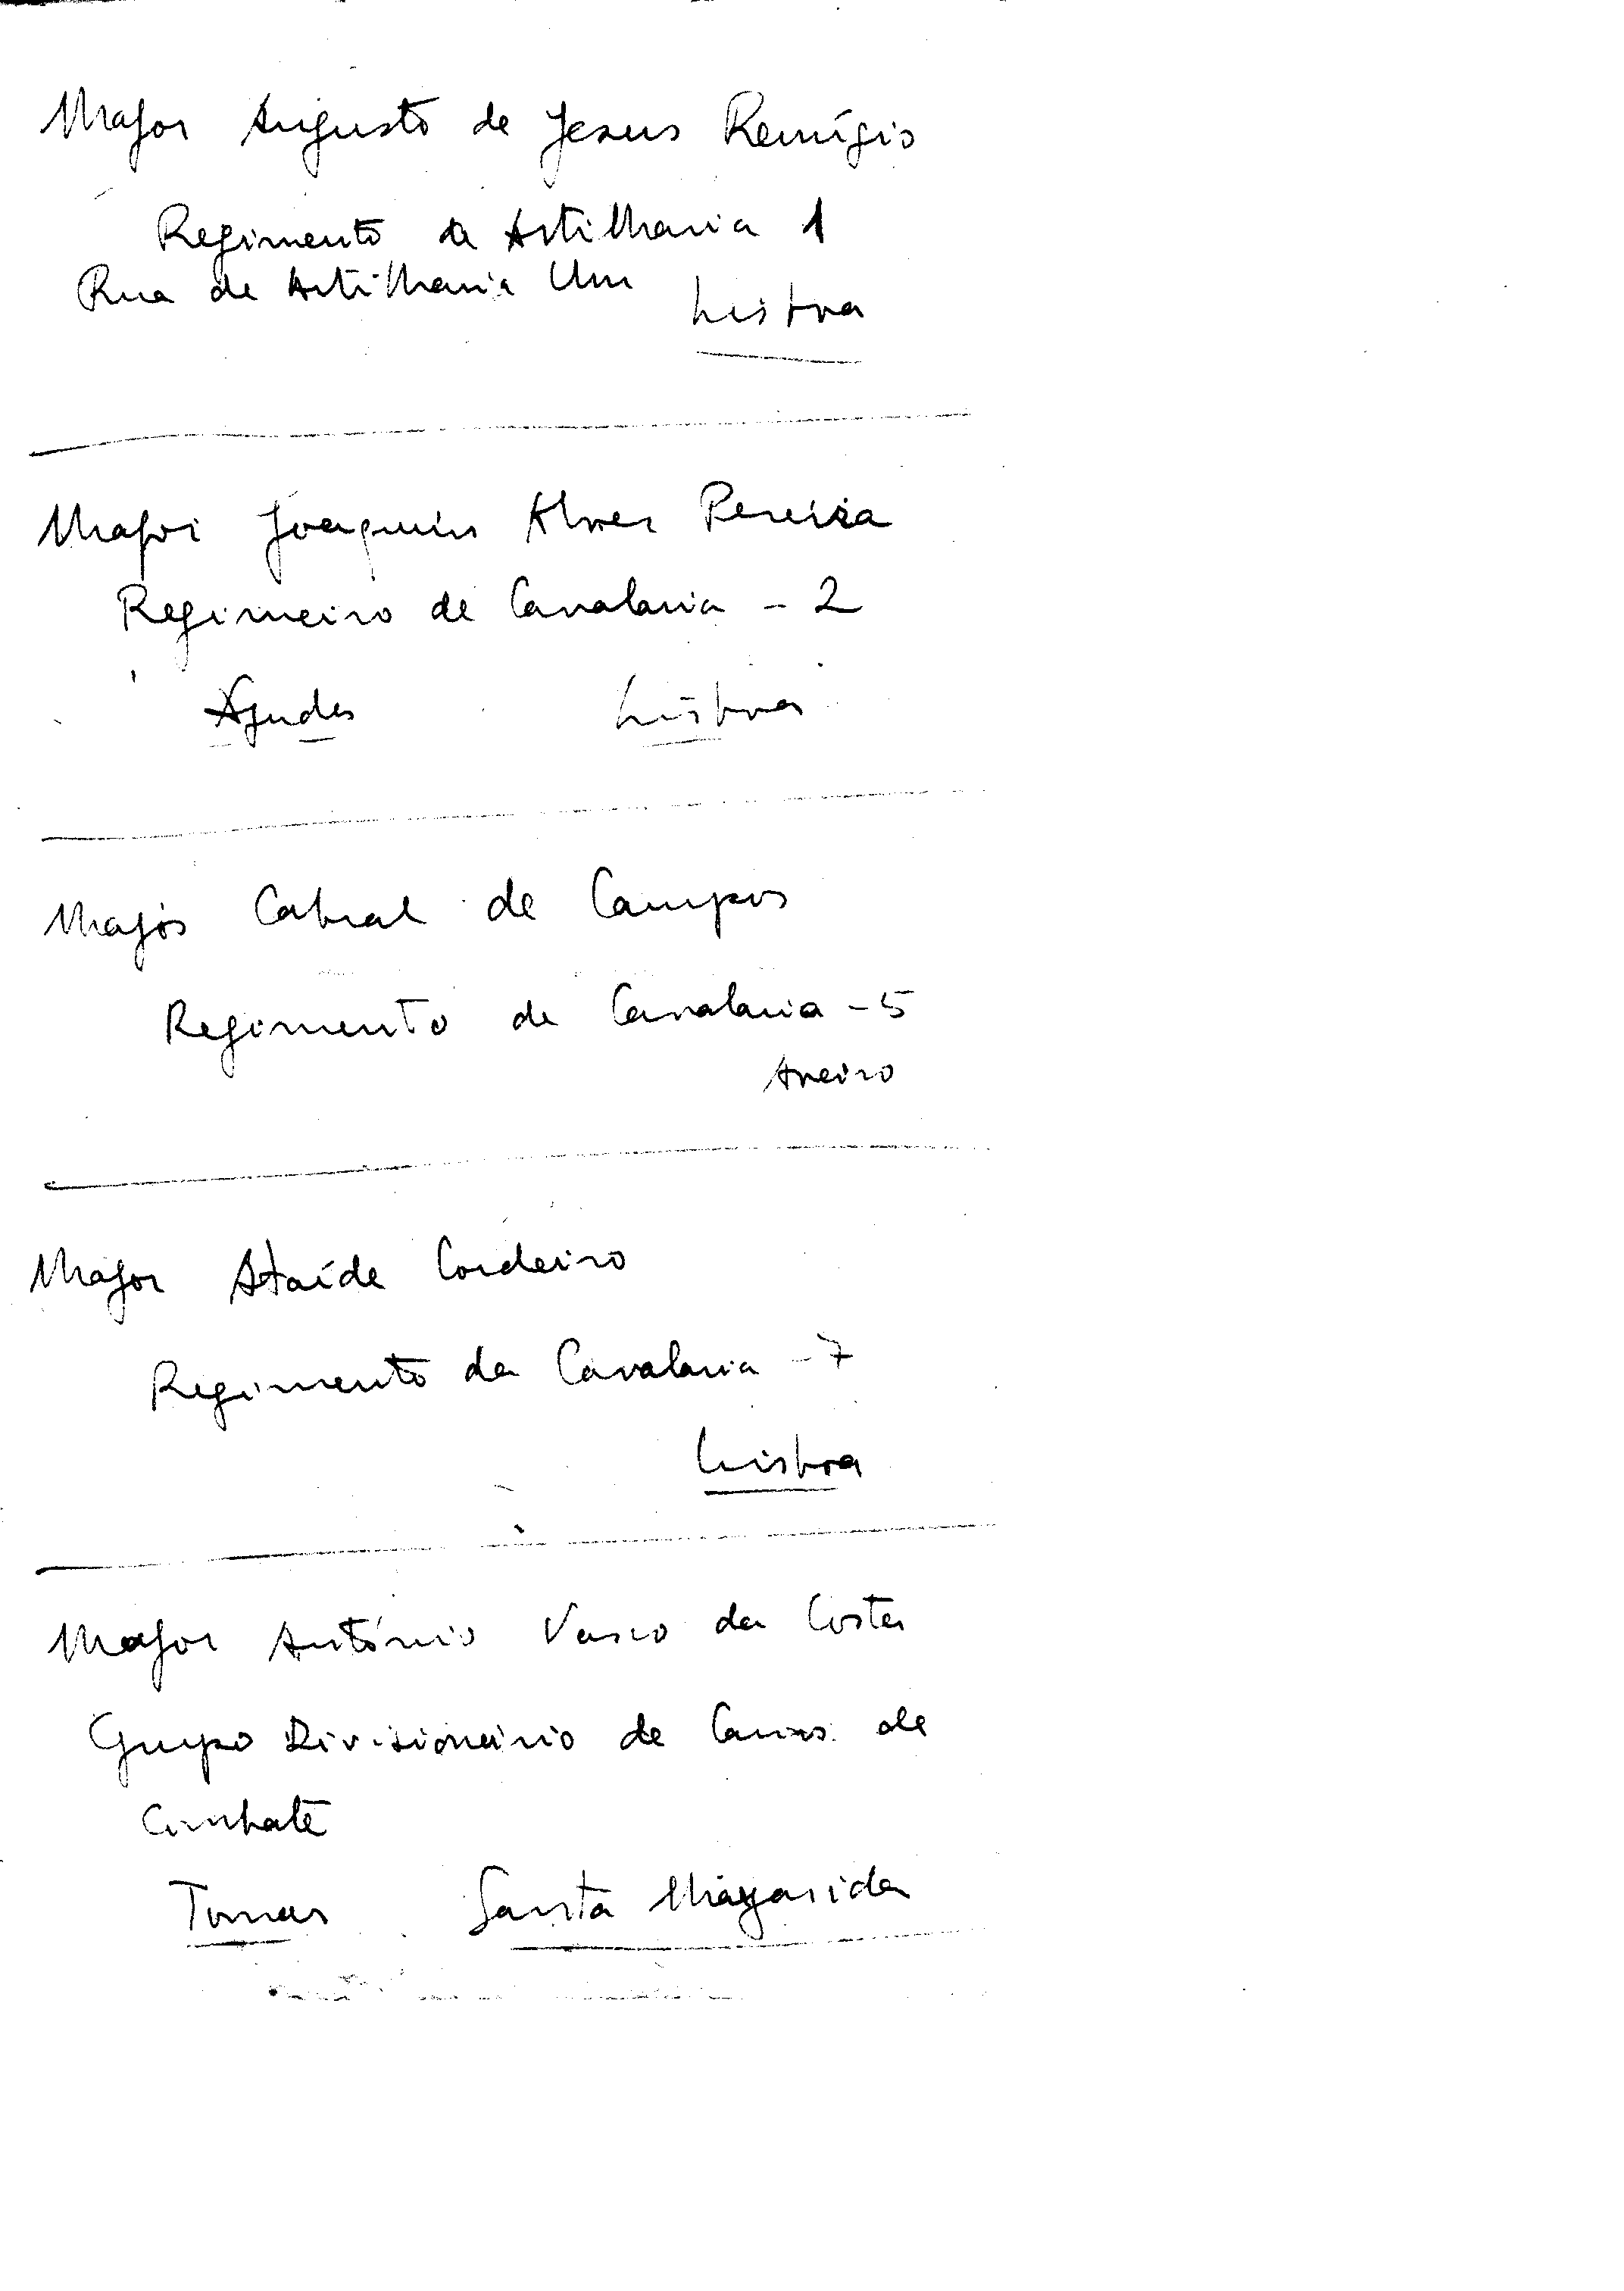 Major Augusto de Jesus Remígio
Regimento de Artilharia 1
Rua de Artilharia Um
Lisboa
Major Joaquim Alves Pereira
Regimeiro de Cavalaria - 2
Lisboa
Major Cabral de Campos
Regimento de Cavalaria - 5
Aveiro
Major Ataíde Cordeiro
Regimento de Cavalaria - 7
Lisboa
Major António Vasco da Costa
Grupo Divisionário de Carros de
Combate
Tomar Santa Margarida